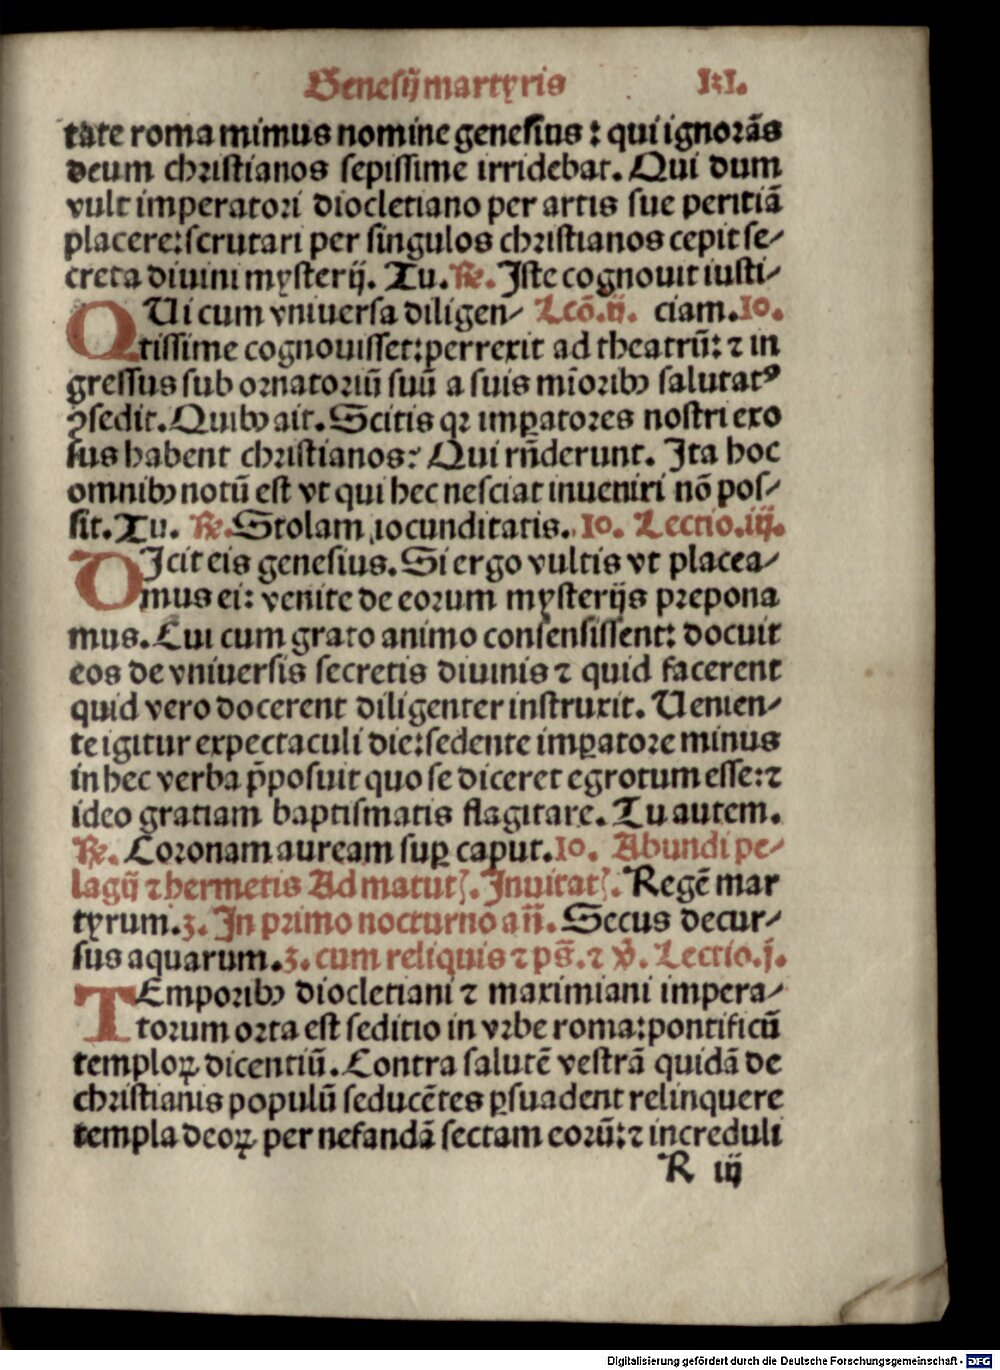 Genesij martyris IxI.
tate roma mimus nomine genesius : qui ignorãs
deum christianos sepissime irridebat. Qui dum
vult imperatori diocletiano per artis sue peritiã
placere: scrutari per singulos christianos cepit se-
creta diuini mysterij. Tu. ℟. Iste cognouit iusti-
QUi cum vniuersa diligen- Lcõ.ij. ciam. 10.
tissime cognouisset: perrexit ad theatrũ: ⁊ in
gressus sub ornatoriũ suũ a suis mĩoribꝫ salutatꝰ
ꝯsedit. Quibꝫ ait. Scitis qꝛ impatores nostri exo
sus habent christianos? Qui rñderunt. Ita hoc
omnibꝫ notũ est vt qui hec nesciat inueniri nõ pos-
sit. Tu. ℟. Stolam iocunditatis. 10. Lectio.iij.
DIcit eis genesius. Si ergo vultis vt placea-
mus ei: venite de eorum mysterijs prepona
mus. Cui cum grato animo consensissent: docuit
eos de vniuersis secretis diuinis ⁊ quid facerent
quid vero docerent diligenter instruxit. Uenien-
te igitur expectaculi die: sedente imꝑatore minus
in hec verba p̄posuit quo se diceret egrotum esse: ⁊
ideo gratiam baptismatis flagitare. Tu autem.
℟. Coronam auream suꝑ caput. 10. Abundi pe-
lagij ⁊ hermetis Ad matutꝭ. Inuitatꝭ. Regẽ mar
tyrum. 3. In primo nocturno añ. Secus decur-
sus aquarum. 3. cum reliquis ⁊ ps̃. ⁊ ℣. Lectio.j.
TEmporibꝫ diocletiani ⁊ maximiani impera-
torum orta est seditio in vrbe roma: pontificũ
temploꝝ dicentiũ. Contra salutẽ vestrã quidã de
christianis populũ seducẽtes ꝑsuadent relinquere
templa deoꝝ per nefandã sectam eorũ: ⁊ increduli
R iij
Digitalisierung gefördert durch die Deutsche Forschungsgemeinschaft - DFG